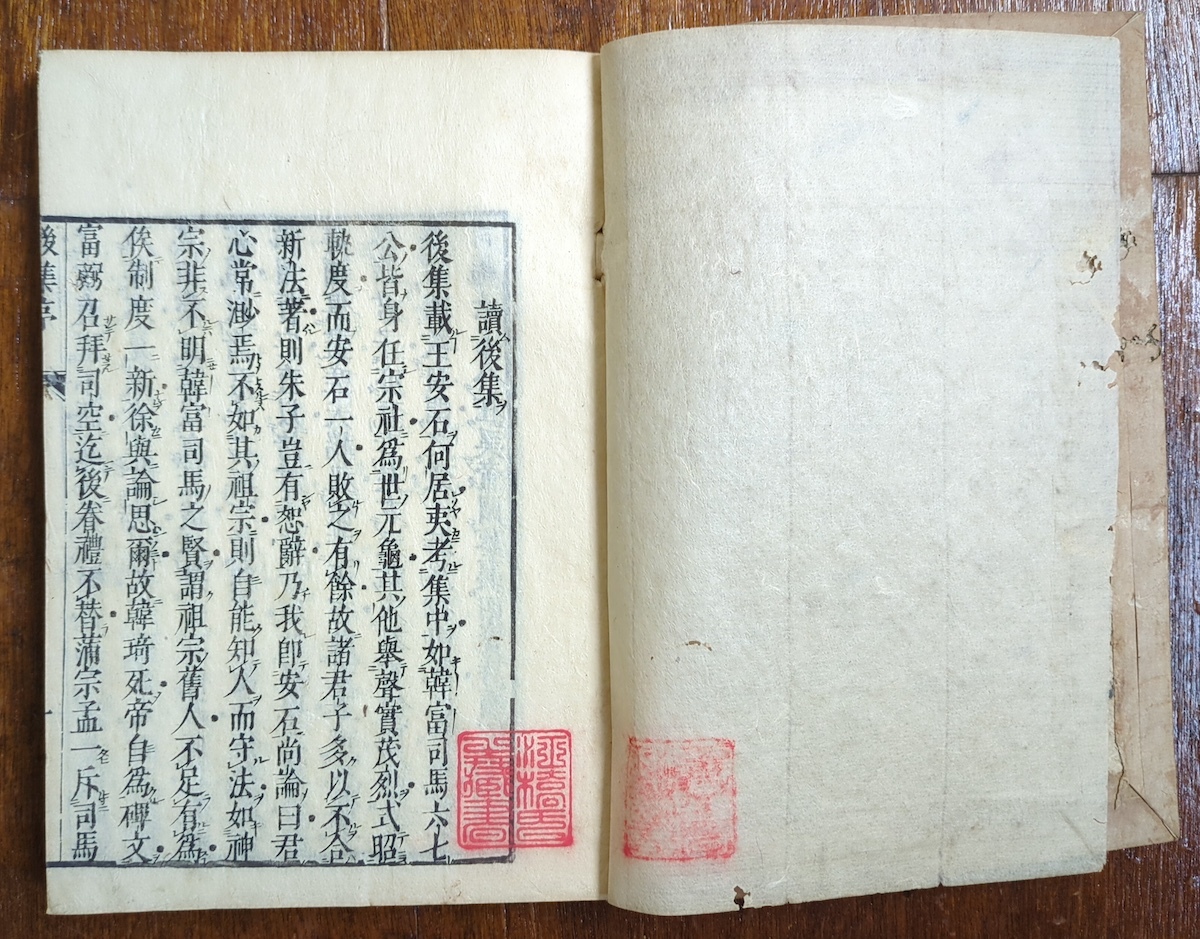 讀後集
後集載王安石何居夷考集中如韓富司馬六七
公皆身任宗社爲世元龜其他舉聲實茂烈式昭
軌度而安石一人敗之有餘故諸君子多以不合
新法著則朱子豈有恕辭乃我卽安石尚論曰君
心常渺焉不如其祖宗則自能知人而守法如神
宗非不明韓富司馬之賢謂祖宗舊人不足有爲
俟制度一新徐與論思爾故韓琦死帝自爲碑文
富弼召拜司空迄後眷禮不替蒲宗孟一斥司馬
後集序
一
藏書